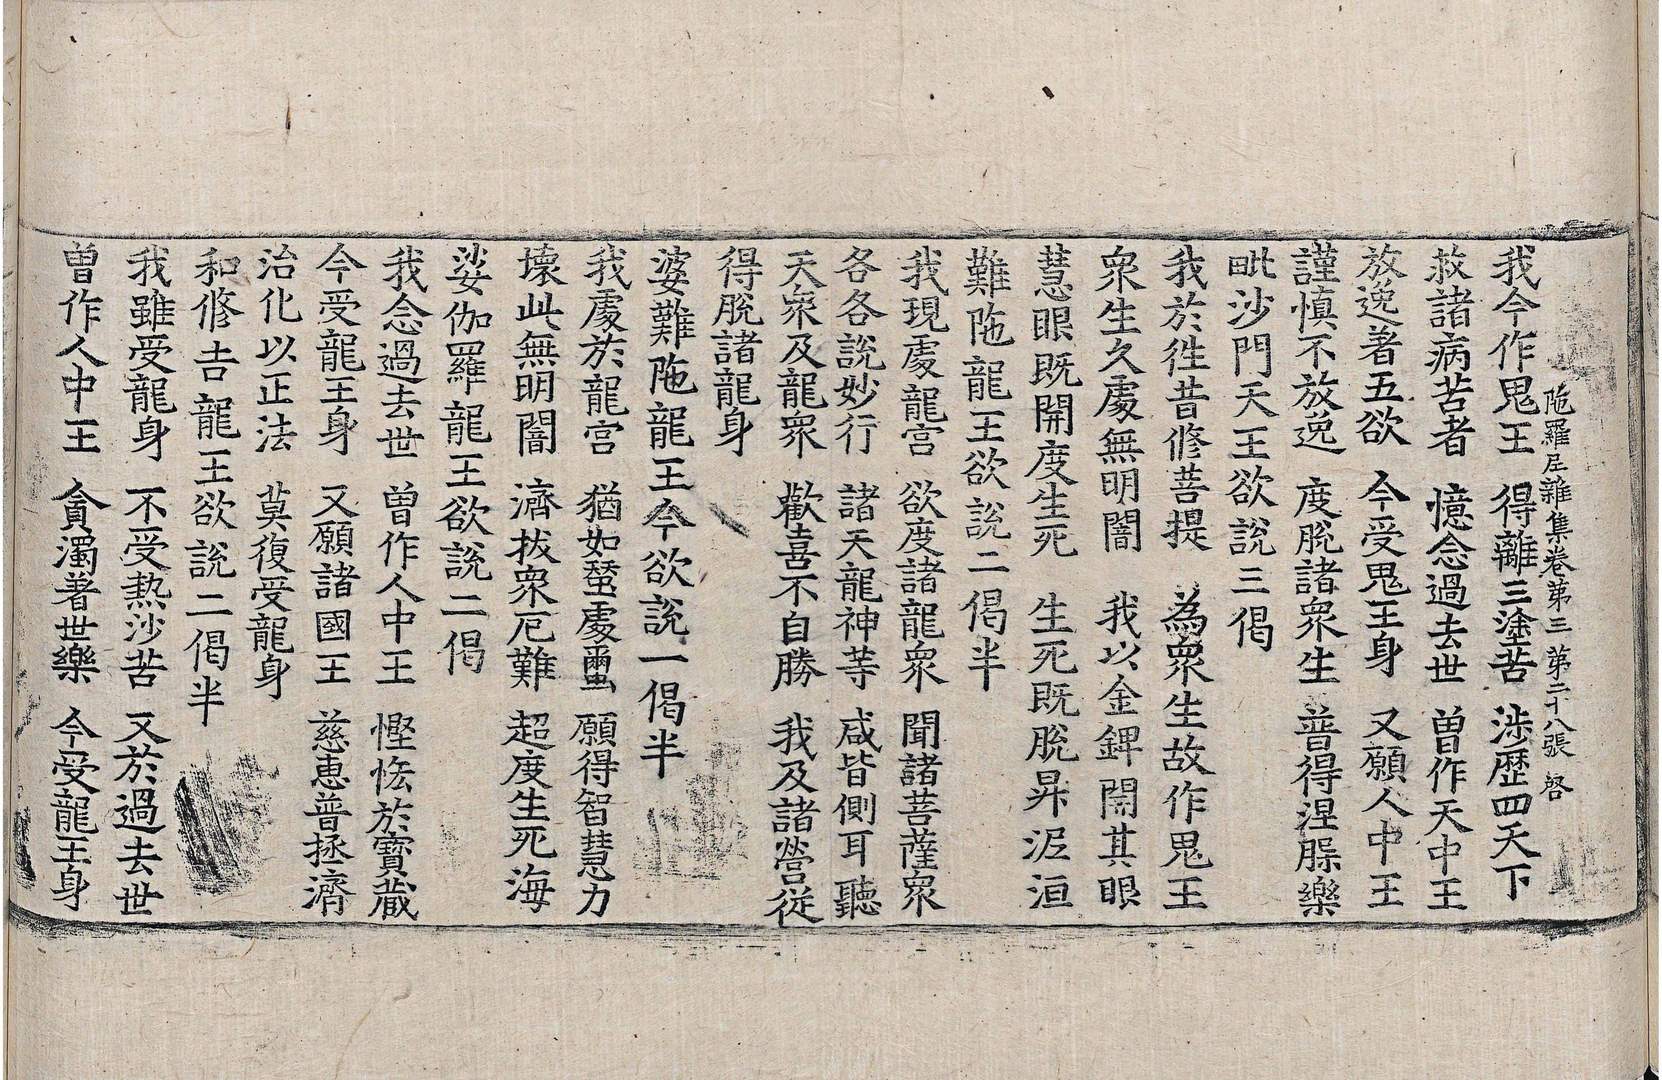 陁羅尼雜集卷第三　第二十八張　啓
我今作鬼王　得離三塗苦　涉歷四天下
救諸病苦者　憶念過去世　曽作天中王
放逸著五欲　今受鬼王身　又願人中王
謹慎不放逸　度脫諸衆生　普得涅槃樂
毗沙門天王欲說三偈
我於徃昔修菩提　為衆生故作鬼王
衆生久處無明闇　我以金錍開其眼
慧眼既開度生死　生死既脫昇泥洹
難陁龍王欲說二偈半
我現處龍宮　欲度諸龍衆　聞諸菩薩衆
各各說妙行　諸天龍神等　咸皆側耳聽
天衆及龍衆　歡喜不自勝　我及諸營從
得脫諸龍身
婆難陁龍王今欲說一偈半
我處於龍宮　猶如蝅處𠕋　願得智慧力
壞此無明闇　濟拔衆厄難　超度生死海
娑伽羅龍王欲說二偈
我念過去世　曽作人中王　慳悋於寶藏
今受龍王身　又願諸國王　慈恵普拯濟
治化以正法　莫復受龍身
和修吉龍王欲說二偈半
我雖受龍身　不受熱沙苦　又於過去世
曽作人中王　貪濁著世樂　今受龍王身